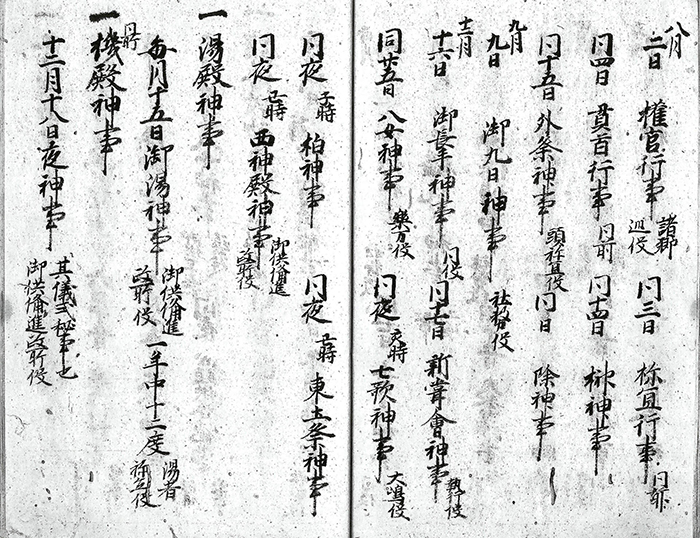 八月
二日 権官行事 諸郡巡役 同三日 祢宜行事 同前
同四日 貫首行事 同前 同十四日 榊神事
同十五日 外祭神事 頭祢宜役 同日 除神事
九月
九日 御九日神事
十二月
十六日 御長年神事 同役 同十七日 新嘗會神事 執行役
同廿五日 八女神事 樂方役 同夜 亥時 七歌神事 大嶋役
同夜 子時 柏神事 同夜 丑時 東土祭神事
同夜 西神殿神事 御供備進政所役
一 湯殿神事
毎月十五日御湯神事 御供備進政所役 一年中十二度
一 機殿神事
十二月十八日夜神事 其儀式秘事也 御供備進政所役